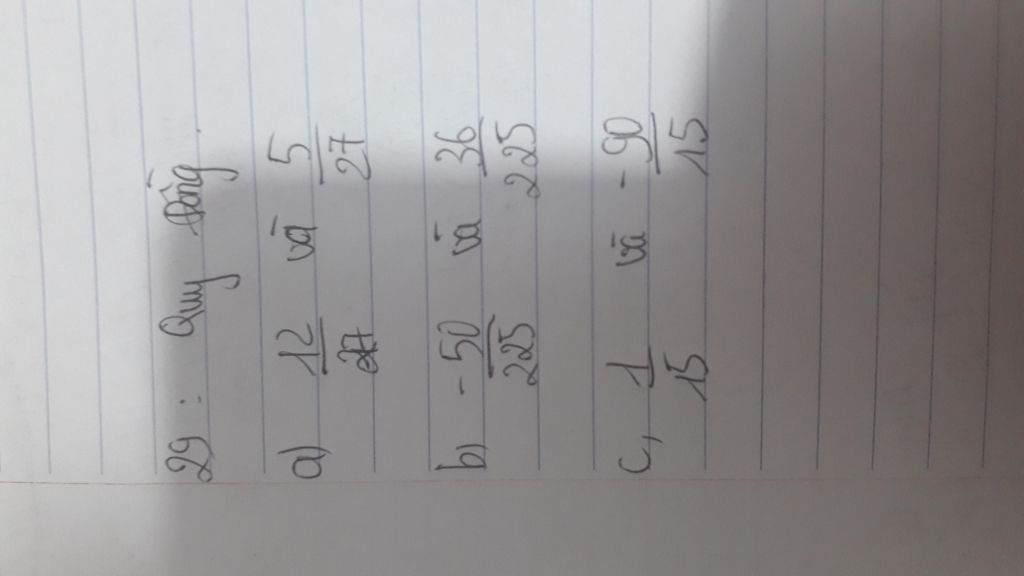 29 : Quy đồng
a) 12/27 và 5/27
b, -50/225 và 36/225
c, 1/15 và -90/15